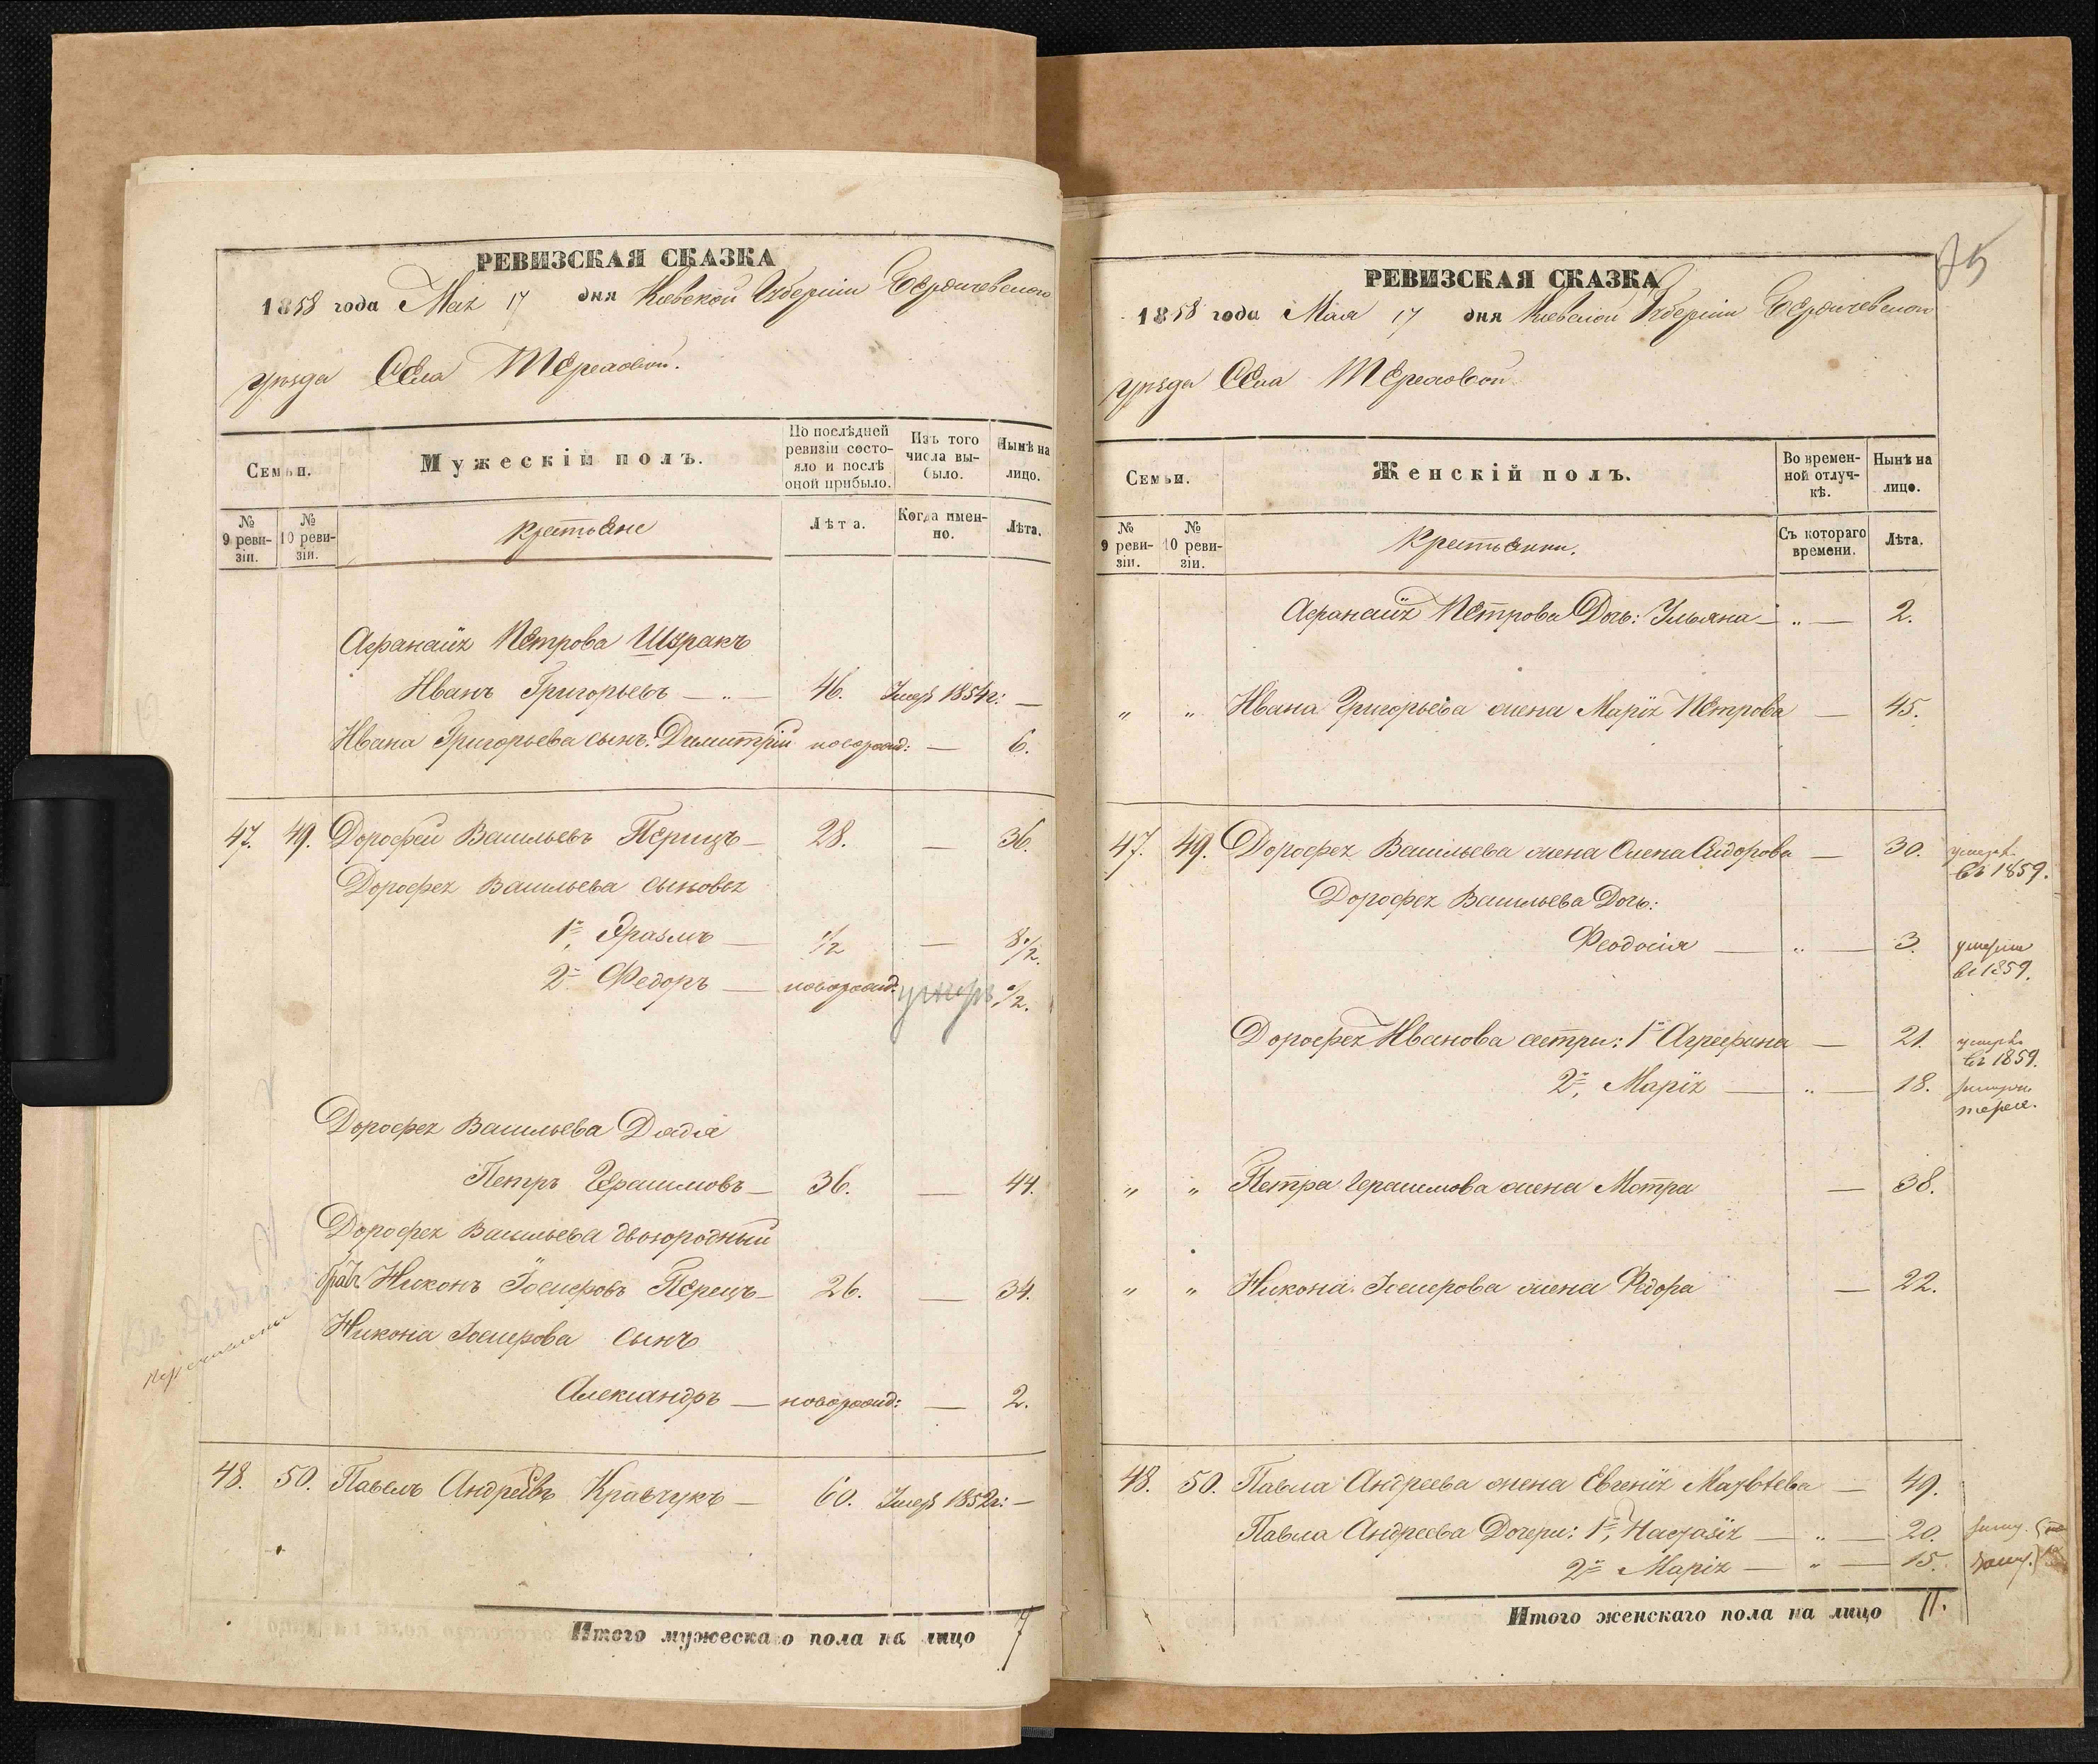 РЕВИЗСКАЯ СКАЗКА
1858 года Маія 17 дня Киевской Губерніи Бердичевского
уѣзда Села Терховой.
Семьи.
Мужескій полъ.
По послѣдней ревизіи состояло и послѣ оной прибыло.
Изъ того числа выбыло.
Нынѣ на лицо.
№ 9 ревизіи.
№ 10 ревизіи.
Крестьяне
Лѣта.
Когда именно.
Лѣта.
Афанасія Петрова
Иванъ Григорьевъ — „ — 46. Умеръ 1854г: —
Ивана Григорьева сынъ: Димитрій новорожд: — 6.
47. 49. Дорофей Васильевъ Перицъ — 28. — 36.
Дорофея Васильева сыновья
1й, Эразмъ — 1/2 — 8 1/2.
2й Федоръ — новорожд: умеръ 1/2.
Дорофея Васильева Дядя
Петръ Герасимовъ — 36. — 44.
Дорофея Васильева двоюродный
братъ Никонъ Іосифовъ Перецъ — 26. — 34.
Никона Іосифова сынъ
Александръ — новорожд: — 2.
перечислены
48. 50. Павелъ Андреевъ Кравчукъ — 60. Умеръ 1852г: —
Итого мужескаго пола на лицо 7
75
РЕВИЗСКАЯ СКАЗКА
1858 года Мая 17 дня Киевской Губерніи Бердичевского
уѣзда Села Терховой
Семьи.
Женскій полъ.
Во временной отлучкѣ.
Нынѣ на лицо.
№ 9 ревизіи.
№ 10 ревизіи.
Крестьянки.
Съ котораго времени.
Лѣта.
Афанасія Петрова Дочь: Ульяна — „ — 2.
„ „ Ивана Григорьева жена Марія Петрова — 45.
47. 49. Дорофея Васильева жена Олена Сидорова — 30. умерла въ 1859.
Дорофея Васильева Дочь:
Феодосія — „ — 3. умерла въ 1859.
Дорофея Иванова сестры: 1я Агрефина — 21. умерла въ 1859.
2я, Марія — „ — 18.
„ „ Петра Герасимова жена Мотра — 38.
„ „ Никона Іосифова жена Федора — 22.
48. 50. Павла Андреева жена Евгенія Матвѣева — 49.
Павла Андреева Дочери: 1я, Настазія — „ — 20. замуж.
2я Марія — „ — 15. замуж.
Итого женскаго пола на лицо 11.